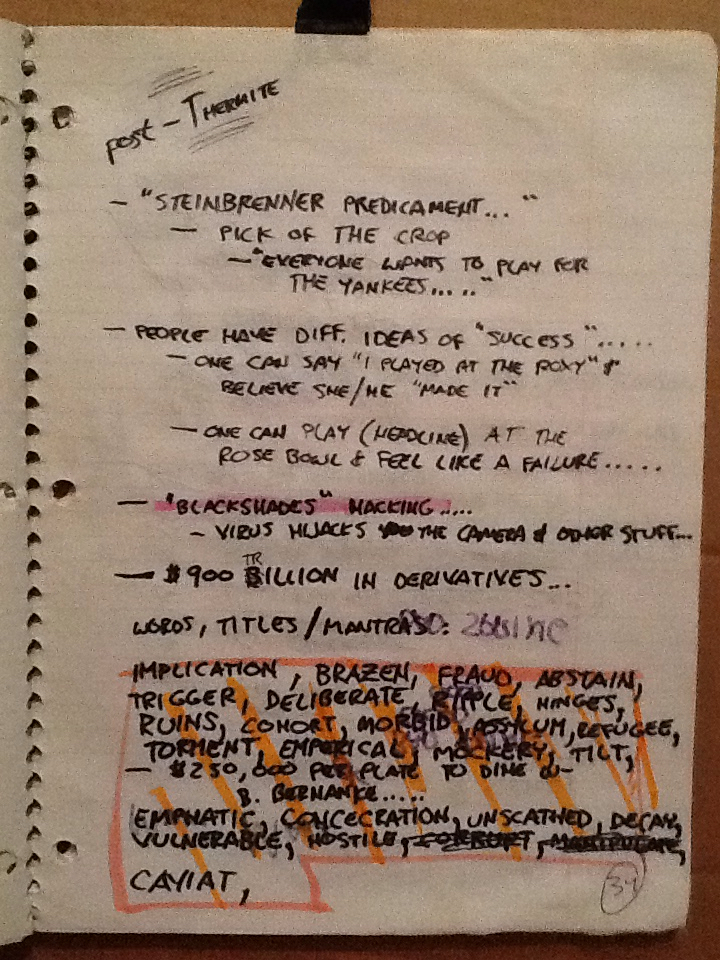 post - THERMITE
- "STEINBRENNER PREDICAMENT... "
- PICK OF THE CROP
- "EVERYONE WANTS TO PLAY FOR
THE YANKEES....."
- PEOPLE HAVE DIFF. IDEAS OF "SUCCESS".....
- ONE CAN SAY "I PLAYED AT THE ROXY" &
BELIEVE SHE/HE "MADE IT"
- ONE CAN PLAY (HEADLINE) AT THE
ROSE BOWL & FEEL LIKE A FAILURE.....
- "BLACKSHADES" HACKING.....
- VIRUS HIJACKS THE CAMERA & OTHER STUFF...
- $900 TRILLION IN DERIVATIVES...
WORDS, TITLES/MANTRAS:
IMPLICATION, BRAZEN, FRAUD, ABSTAIN,
TRIGGER, DELIBERATE, RIPPLE, HINGES,
RUINS, COHORT, MORBID, ASYLUM, REFUGEE,
TORMENT, EMPERICAL, MOCKERY, TILT,
- $250,000 PER PLATE TO DINE W-
B. BERNANKE.....
EMPHATIC, CONCECRATION, UNSCATHED, DECAY,
VULNERABLE, HOSTILE, CORRUPT, MANIPULATE,
CAVIAT,
34